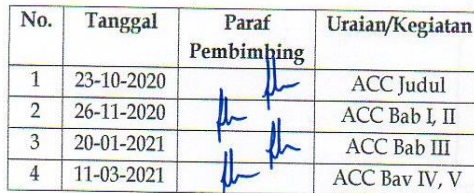 No. Tanggal Paraf Pembimbing Uraian/Kegiatan
1 23-10-2020 ACC Judul
2 26-11-2020 ACC Bab I, II
3 20-01-2021 ACC Bab III
4 11-03-2021 ACC Bav IV, V